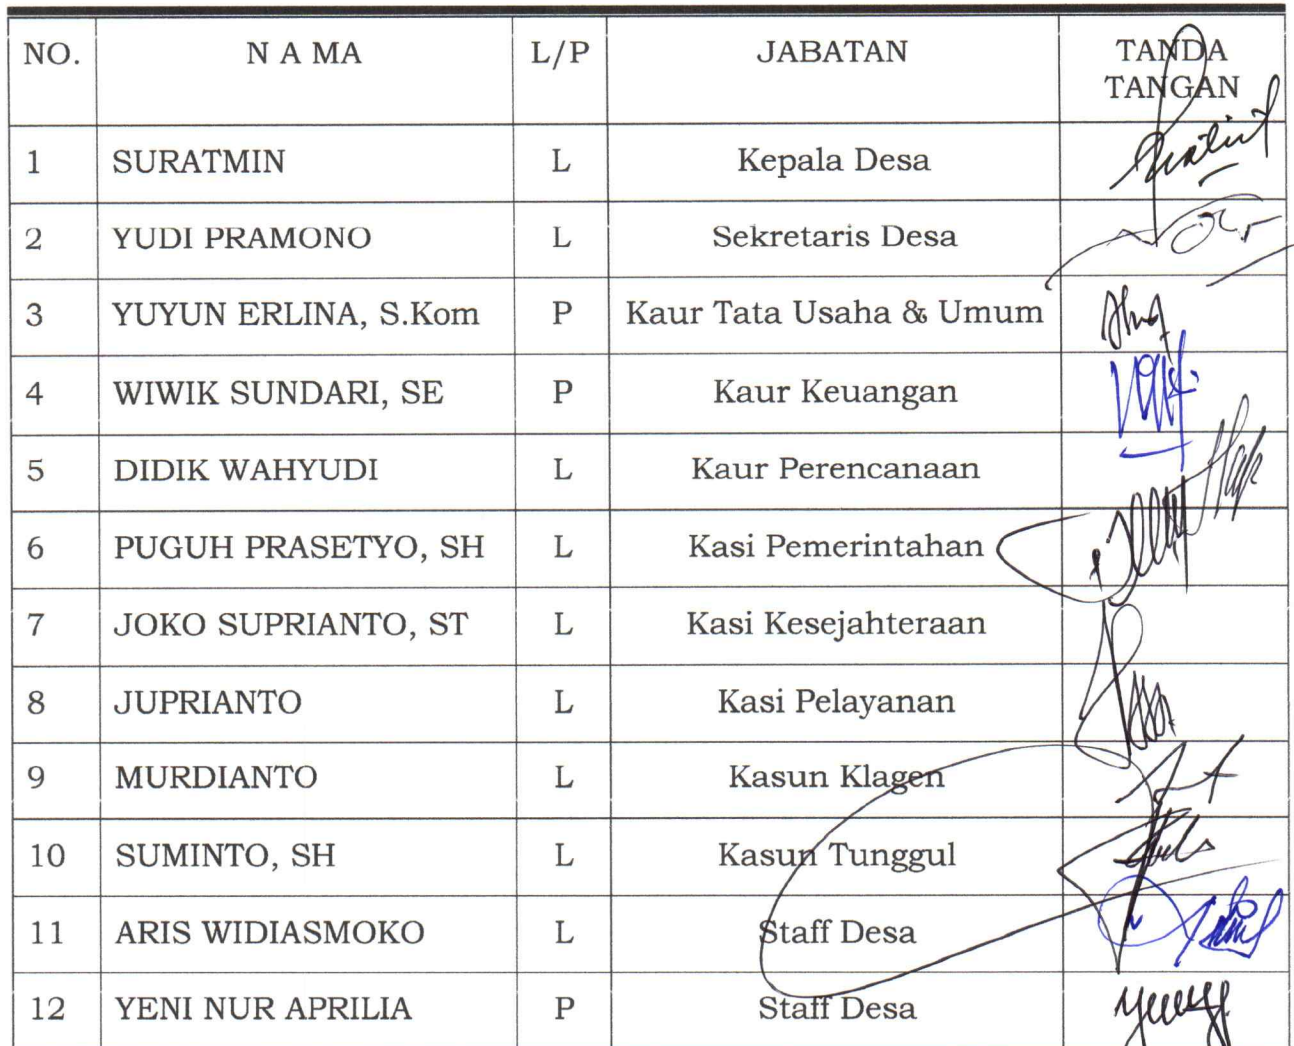 NO. N A MA L/P JABATAN TANDA
TANGAN
1 SURATMIN L Kepala Desa
2 YUDI PRAMONO L Sekretaris Desa
3 YUYUN ERLINA, S.Kom P Kaur Tata Usaha & Umum
4 WIWIK SUNDARI, SE P Kaur Keuangan
5 DIDIK WAHYUDI L Kaur Perencanaan
6 PUGUH PRASETYO, SH L Kasi Pemerintahan
7 JOKO SUPRIANTO, ST L Kasi Kesejahteraan
8 JUPRIANTO L Kasi Pelayanan
9 MURDIANTO L Kasun Klagen
10 SUMINTO, SH L Kasun Tunggul
11 ARIS WIDIASMOKO L Staff Desa
12 YENI NUR APRILIA P Staff Desa